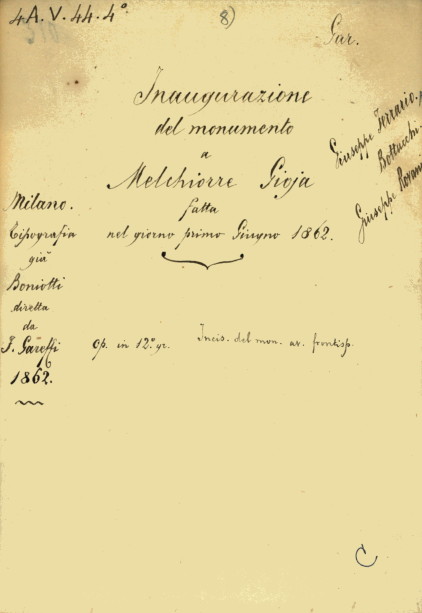 4A.V.44.4°
8)
Gar.
Inaugurazione
del monumento
a
Melchiorre Gioja
fatta
nel giorno primo Giugno 1862.
Giuseppe Ferrario.
Bottacchi.
Giuseppe Rovani
Milano.
Tipografia
già
Boniotti
diretta
da
F. Gareffi
1862.
Op. in 12.° gr.
Incis. del mon. av. frontisp.
C